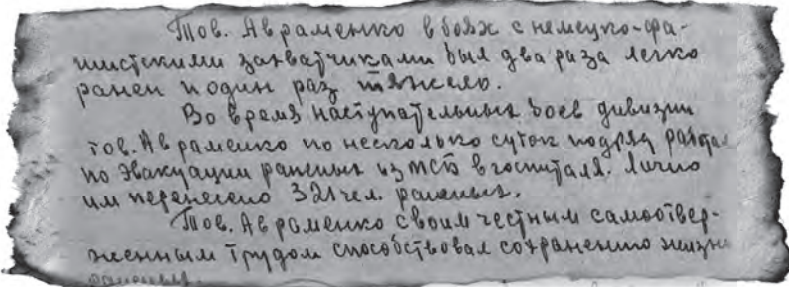 Тов. Авраменко в боях с немецко-фа-
шистскими захватчиками был два раза легко
ранен и один раз тяжело.
Во время наступательных боев дивизии
тов. Авраменко по несколько суток подряд
по эвакуации раненых из МСБ в госпиталя. Лично
им перенесено 321 чел. раненых.
Тов. Авраменко своим честным самоотвер-
женным трудом способствовал сохранению жизни
раненых.